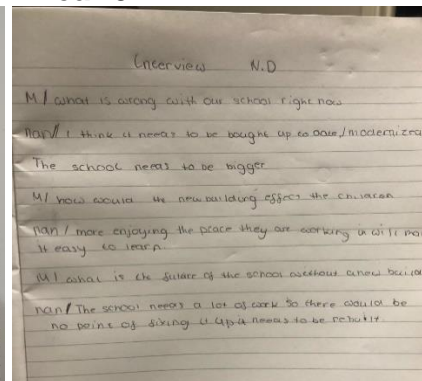 Interview N.D
M/ what is wrong with our school right now
nan/ I think it needs to be bought up to date/modernized
The school needs to be bigger
M/ how would the new building effect the children
nan/ more enjoying the place they are working in will
it easy to learn
M/ what is the future of the school without a new
nan/ The school needs a lot of work so there would be
no point of fixing it up it needs to be rebuilt.